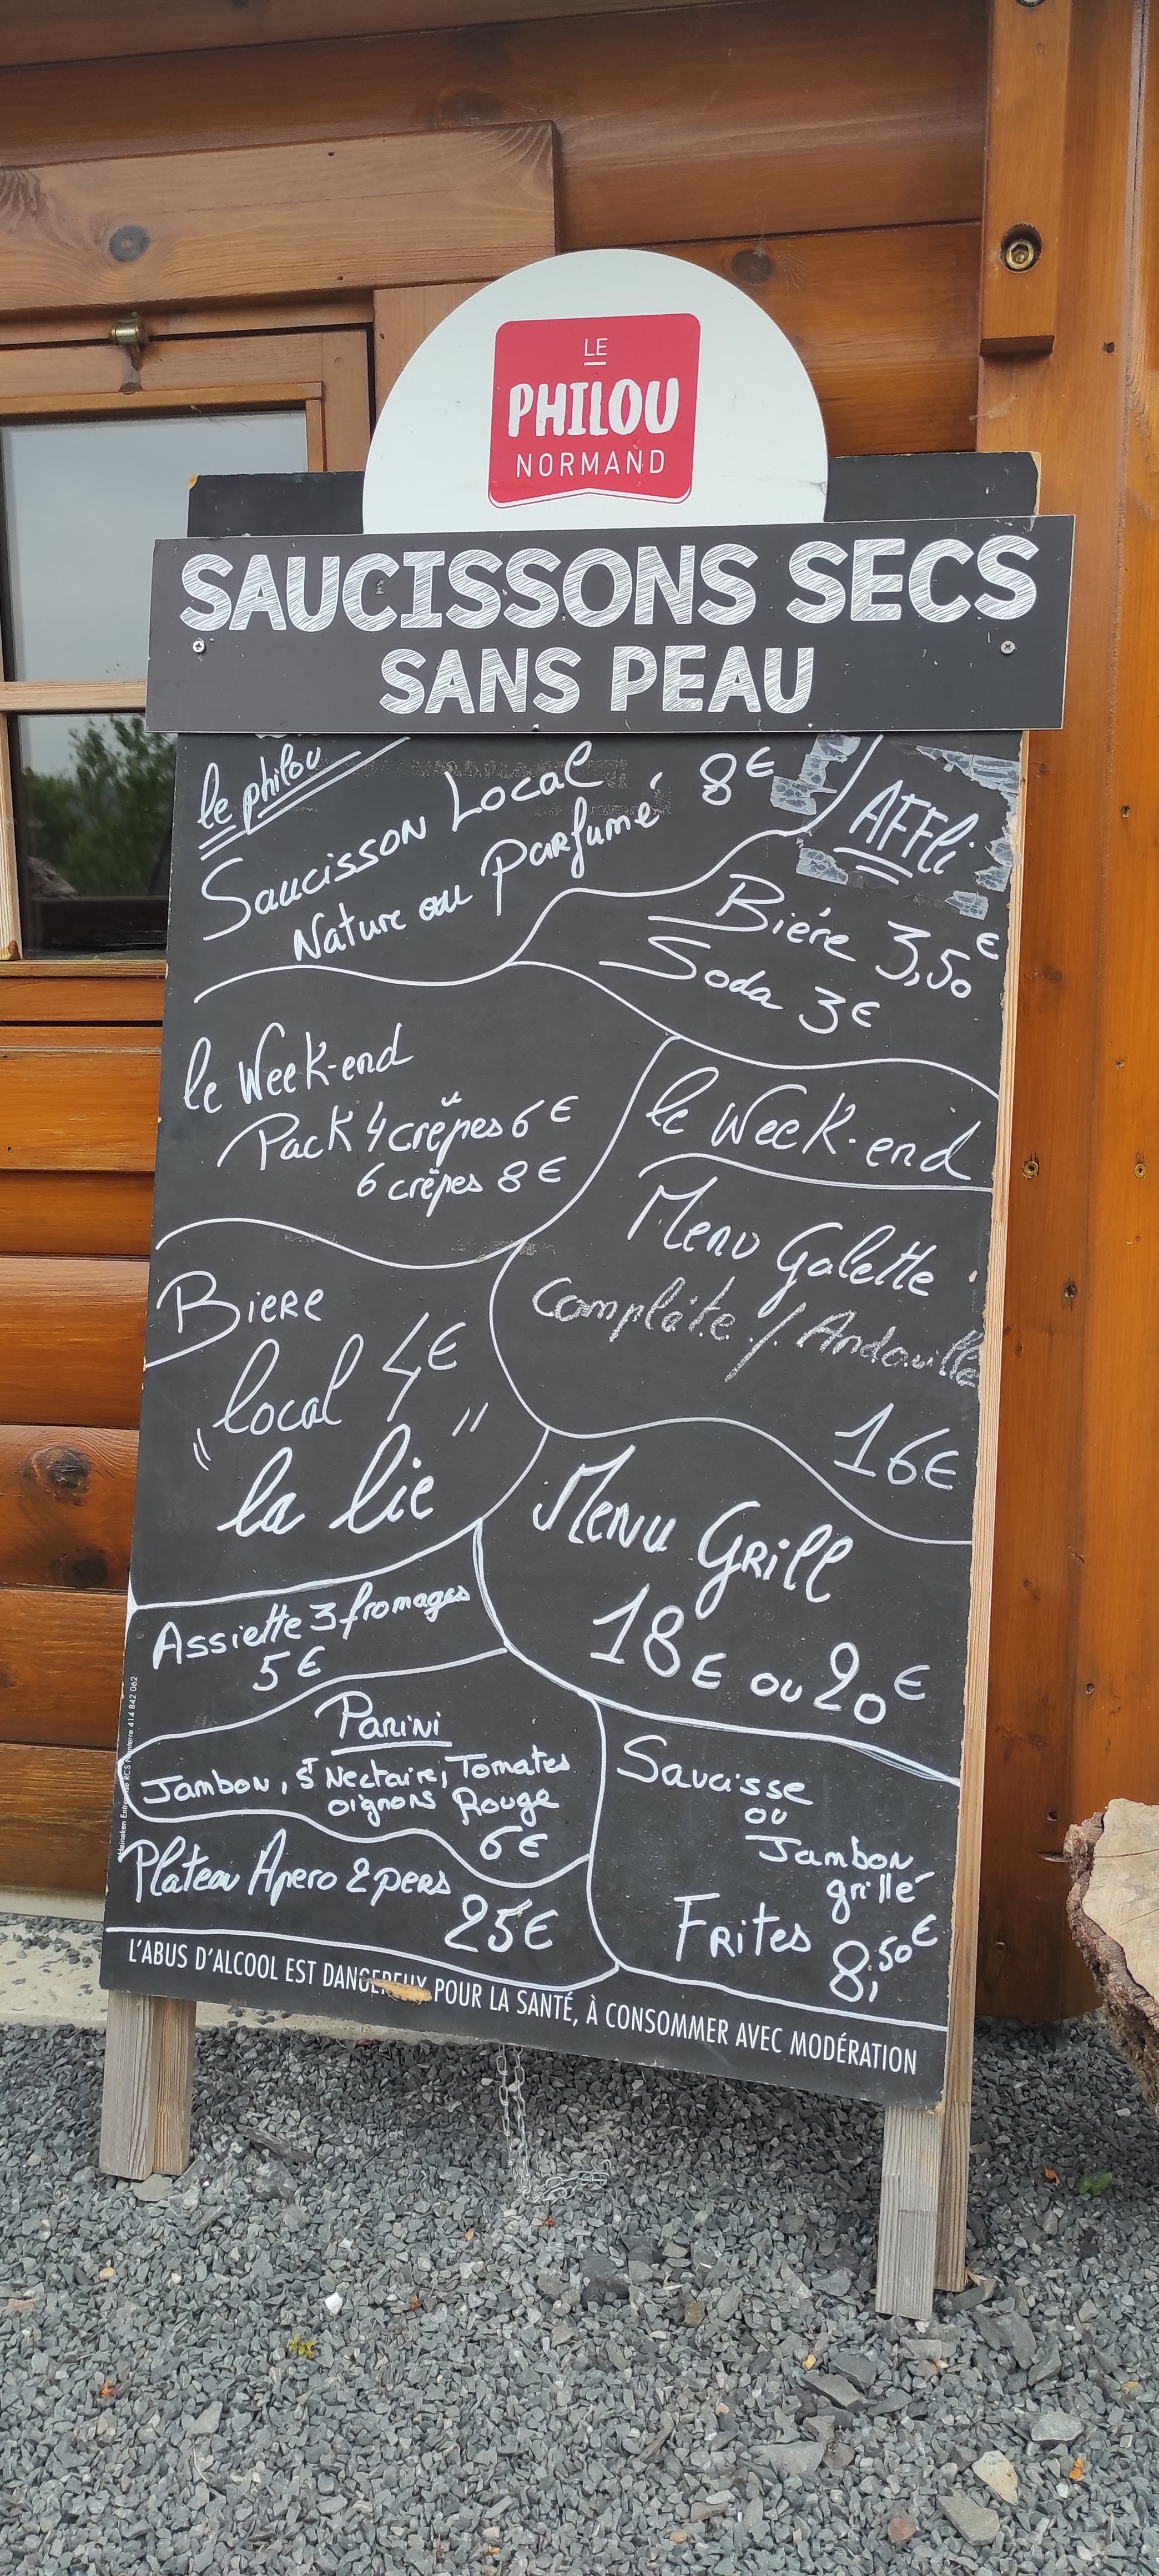 LE
PHILOU
NORMAND
SAUCISSONS SECS
SANS PEAU
le philou
Saucisson Local 8€
Nature ou Parfumé
AFFli
Biére 3,50€
Soda 3€
le Week-end
Pack 4 crêpes 6€
6 crêpes 8€
le Week-end
Menu Galette
Complète / Andouille
16€
Biere
local 4€
"la lie"
Menu Grill
18€ ou 20€
Assiette 3 fromages
5€
Panini
Jambon, St Nectaire, Tomates
oignons Rouge
6€
Plateau Apero 2 pers
25€
Saucisse
ou
Jambon
grillé
Frites 8,50€
L'ABUS D'ALCOOL EST DANGEREUX POUR LA SANTÉ, À CONSOMMER AVEC MODÉRATION
Heineken Entreprise RCS Nanterre 414 842 062